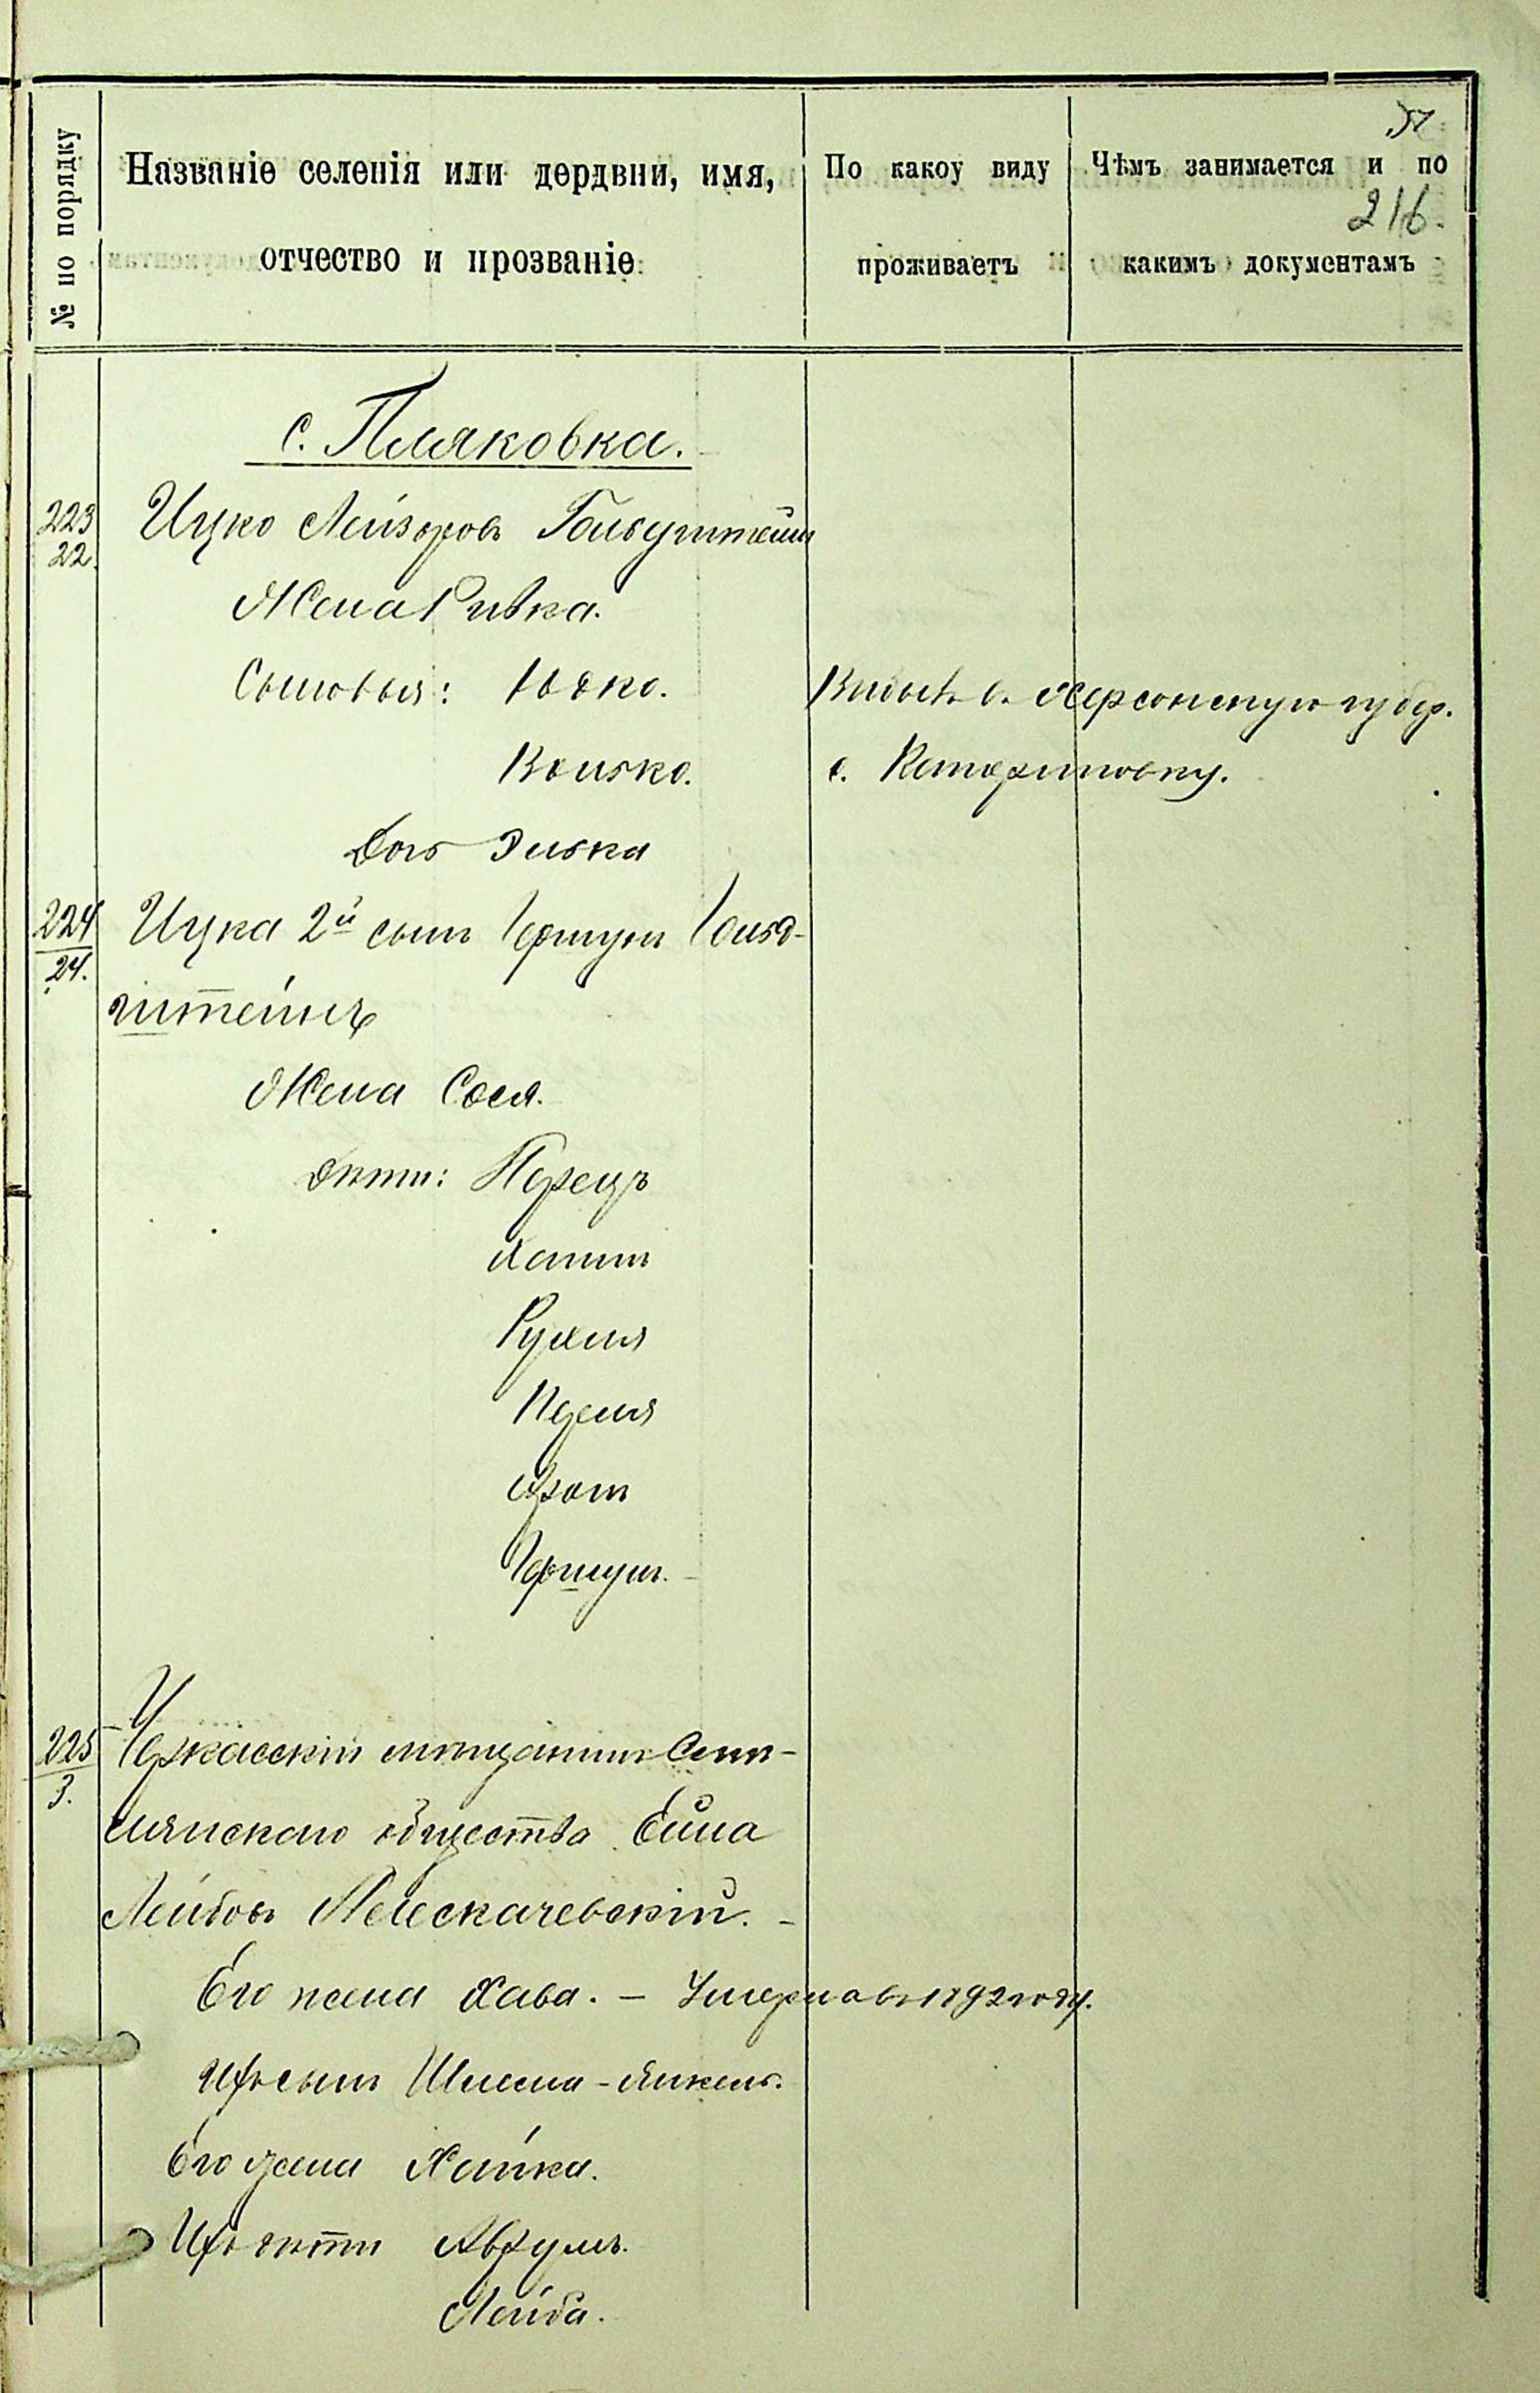 57
№ по порядку
Названіе селенія или дердвни, имя,
отчество и прозваніе
По какоу виду
проживаетъ
Чѣмъ занимается и по
какимъ документамъ
216.
с. Пляковка.
223
22.
Ицко Лейзоровъ Гольдштейнъ
Жена Ривка.
Сыновья: Іодко.
Волько.
Выбылъ въ Херсонскую губер.
с. Катериновку.
Дочь Элька
224
24.
Ицка 2й сынъ Гершунъ Гольд-
штейнъ
Жена Сося.
Дѣти: Перецъ
Хаимъ
Рухля
Перля
Аронъ
Гершунъ.
225
3.
Черкасскій мѣщанинъ Смѣ-
лянскаго общества Ейна
Лейбовъ Телескачевскій.
Его жена Хава. — Умерла въ 1892 году.
Ихъ сынъ Шлема-Янкель.
Его жена Хайка.
Ихъ дѣти Аврумъ.
Лейба.